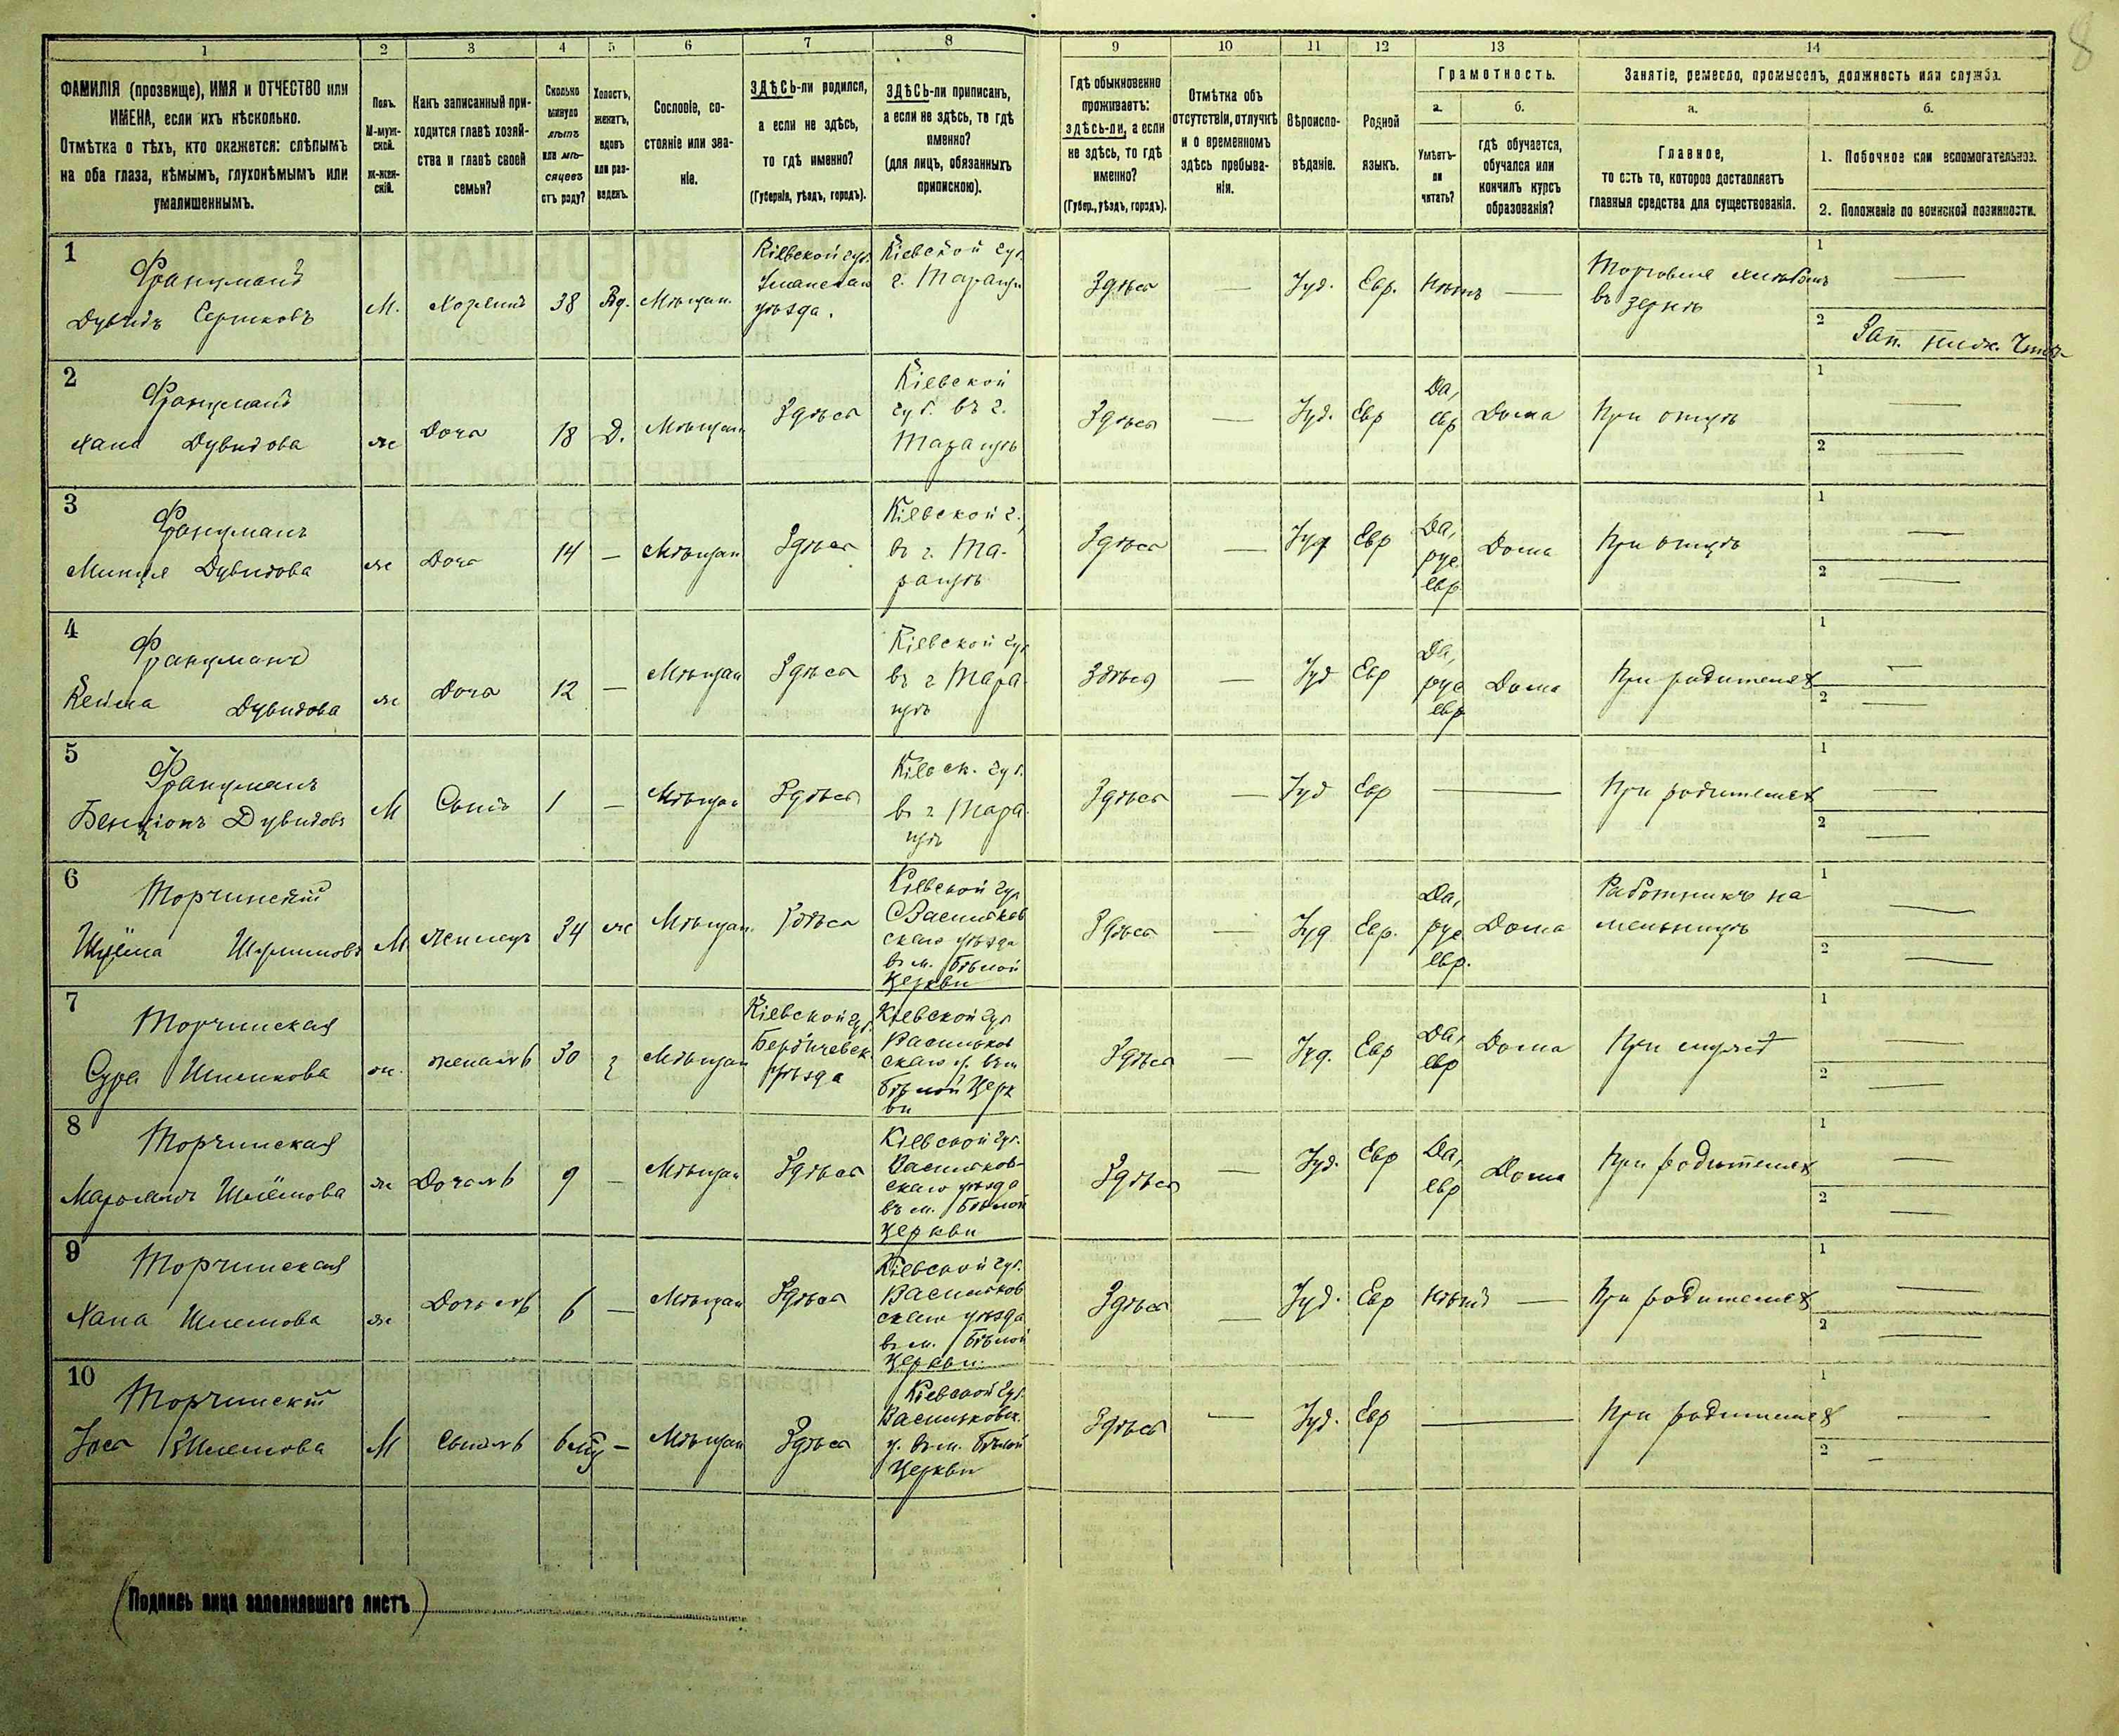 8
1 2 3 4 5 6 7 8 9 10 11 12 13 14
ФАМИЛІЯ (прозвище), ИМЯ и ОТЧЕСТВО или
ИМЕНА, если ихъ нѣсколько.
Отмѣтка о тѣхъ, кто окажется: слѣпымъ
на оба глаза, нѣмымъ, глухонѣмымъ или
умалишеннымъ.
Полъ.
М-муж-
ской.
Ж-жен-
скій.
Какъ записанный при-
ходится главѣ хозяй-
ства и главѣ своей
семьи?
Сколько
минуло
лѣтъ
или мѣ-
сяцевъ
отъ роду?
Холостъ,
женатъ,
вдовъ
или раз-
веденъ.
Сословіе, со-
стояніе или зва-
ніе.
ЗДѢСЬ-ли родился,
а если не здѣсь,
то гдѣ именно?
(Губернія, уѣздъ, городъ).
ЗДѢСЬ-ли приписанъ,
а если не здѣсь, то гдѣ
именно?
(для лицъ, обязанныхъ
припискою).
Гдѣ обыкновенно
проживаетъ:
здѣсь-ли, а если
не здѣсь, то гдѣ
именно?
(Губер., уѣздъ, городъ).
Отмѣтка объ
отсутствіи, отлучкѣ
и о временномъ
здѣсь пребыва-
ніи.
Вѣроиспо-
вѣданіе.
Родной
языкъ.
Грамотность.
а.
Умѣетъ-
ли
читать?
б.
гдѣ обучается,
обучался или
кончилъ курсъ
образованія?
Занятіе, ремесло, промыселъ, должность или служба.
а.
Главное,
то есть то, которое доставляетъ
главныя средства для существованія.
б.
1. Побочное или вспомогательное.
2. Положеніе по воинской повинности.
1
Францманъ
Дувидъ
М.
Хозяинъ
38
Вд.
Мѣщан.
Кіевской губ.
Уманскаго
уѣзда.
Кіевской губ.
г. Таращи
Здѣсь
—
Іуд.
Евр.
Нѣтъ —
Торговля хлѣбомъ
въ зернѣ
1 —
2
2
Францманъ
Хана Дувидова
ж
Дочь
18
Д.
Мѣщан
Здѣсь
Кіевской
губ. въ г.
Таращѣ
Здѣсь
—
Іуд.
Евр
Да,
евр
Дома
При отцѣ
1 —
2 —
3
Францманъ
Дувидова
ж
Дочь
14
—
Мѣщан
Здѣсь
Кіевской г.
въ г. Та-
ращѣ
Здѣсь
—
Іуд
Евр
Да,
рус.
евр
Дома
При отцѣ
1 —
2 —
4
Францманъ
Дувидова
ж
Дочь
12
—
Мѣщан
Здѣсь
Кіевской губ
въ г Тара-
щѣ
Здѣсь
—
Іуд
Евр
Да,
рус
евр
Дома
При родителях
1 —
2 —
5
Францманъ
Бенціонъ Дувидовъ
М
Сынъ
1
—
Мѣщан
Здѣсь
Кіевск. губ.
въ г Тара-
щѣ
Здѣсь
—
Іуд
Евр
—
При родителях
1 —
2 —
6
Торчинскій
М
34
ж
Мѣщан.
Здѣсь
Кіевской губ
Васильков
скаго уѣзда
въ м. Бѣлой
Церкви
Здѣсь
—
Іуд
Евр.
Да,
рус
евр.
Дома
Работникъ на
мельницѣ
1 —
2 —
7
Торчинская
Сура
ж.
жена
30
Мѣщан
Кіевской губ.
Бердичевск.
уѣзда
Кіевской губ
Васильков
скаго у. въ м
Бѣлой Церк
ви
Здѣсь
—
Іуд.
Евр
Да,
евр
Дома
При мужѣ
1 —
2 —
8
Торчинская
ж
Дочь
9
—
Мѣщан
Здѣсь
Кіевской губ.
Васильков-
скаго уѣзда
въ м. Бѣлой
Церкви
Здѣсь
—
Іуд.
Евр
Да,
евр
Дома
При родителях
1 —
2 —
9
Торчинская
Хана
ж
Дочь
6
—
Мѣщан
Здѣсь
Кіевской губ.
Васильков
скаго уѣзда
въ м. Бѣлой
Церкви.
Здѣсь
—
Іуд.
Евр
Нѣтъ —
При родителях
1 —
2 —
10
Торчинскій
М
Сынъ
—
Мѣщан
Здѣсь
Кіевской губ.
Васильковск.
у. въ м. Бѣлой
Церкви
Здѣсь
—
Іуд.
Евр
—
При родителях
1 —
2 —
(Подпись лица заполнявшаго листъ)